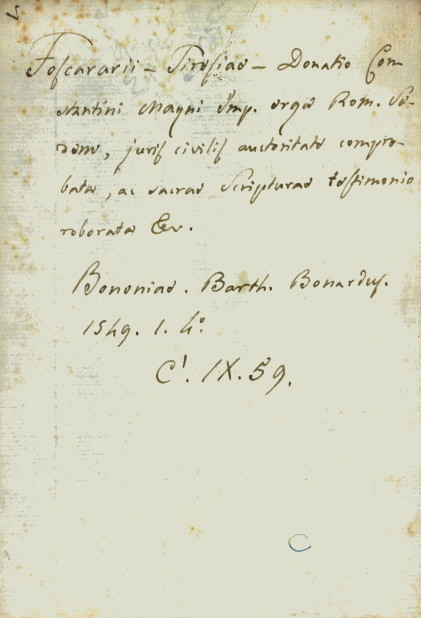 Foscararii – Tiresiae – Donatio Con-
stantini Magni Imp. erga Rom. Se-
dem, juris civilis auctoritate compro-
bata, ac sacrae Scripturae testimonio
roborata &c.
Bononiae. Barth. Bonardus.
1549. 1. 4°
C¹. IX. 59.
C